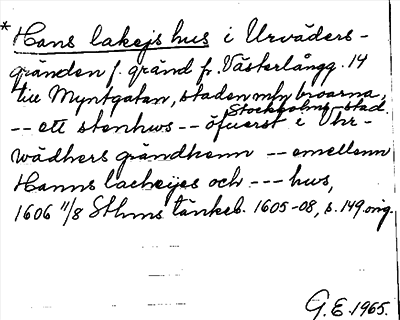 * Hans lakejs hus i Urväders-
gränden f. gränd fr. Västerlångg. 14
till Myntgatan, staden mln broarna,
Stockholms stad.
-- ett stenhws -- öfwerst i Vhr-
wädhers grändhenn -- emellenn
Hanns lacheijes och --- hus,
1606 11/8 Sthms tänkeb. 1605-08, s. 149 orig.
G. E. 1965.